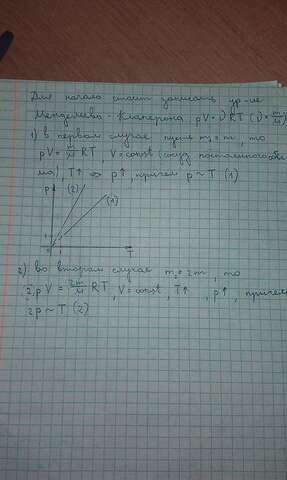 Для начала стоит записать ур-ие
Менделеева-Клаперона pV = νRT (ν = m/μ)
1) в первом случае пусть m₁ = m, то
pV = m/μ RT, V = const (сосуд постоянного объе
ма), T↑ ⇔ p↑, причем p ~ T (1)
P (2)
(1)
T
2) во втором случае m₂ = 2m, то
2pV = 2m/μ RT, V = const, T↑, p↑, причем
2p ~ T (2)